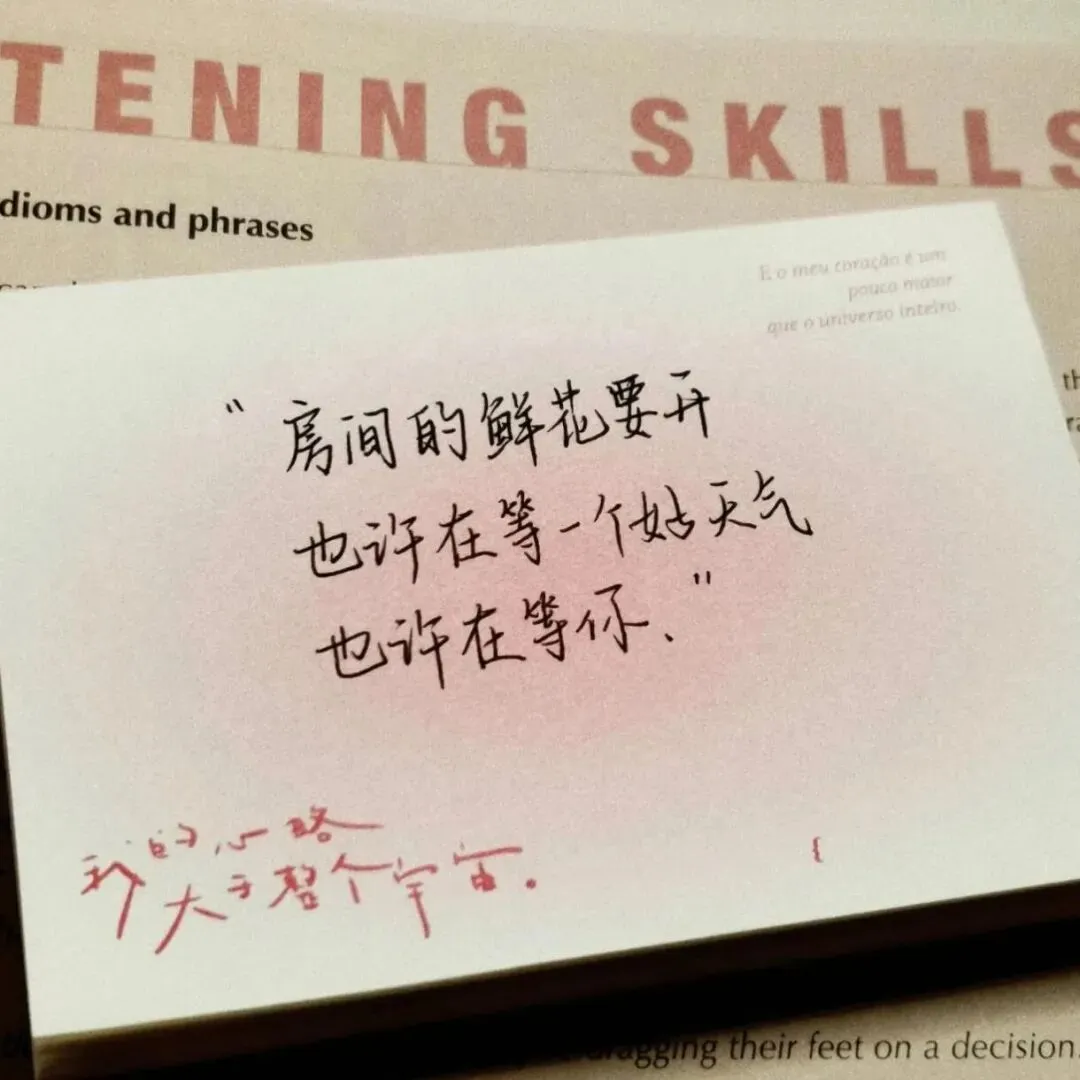 TENING SKILLS
dioms and phrases
E o meu coração é um
pouco maior
que o universo inteiro.
“房间的鲜花要开
也许在等一个好天气
也许在等你、”
我的心略
大于整个宇宙。
{
dragging their feet on a decision.